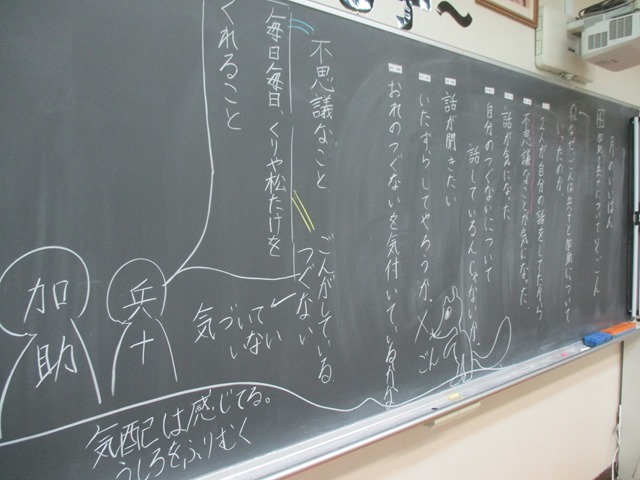 月のいいばん
Qなぜ、ごんは兵十と加助について
いったのか。
が自分の話をしてたから
不思議なことが気になった
話が気になった
自分のつぐないについて
話しているんじゃないか
話が聞きたい
いたずらしてやろうか
おれのつぐないを気付いているかな
ごん
不思議なこと
ごんがしている
つぐない
気づいて
いない
毎日毎日、くりや松たけを
くれること
兵十
加助
気配は感じてる。
うしろをふりむく